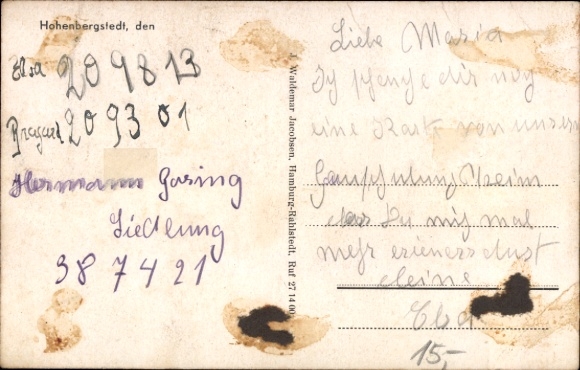 Hohenbergstedt, den
Elsa 209813
209301
Hermann Göring
Siedlung
387421
J. Waldemar Jacobsen, Hamburg-Rahlstedt, Ruf 27 14 00
Liebe Maria
Ich schenke dir noch
eine Karte von unsern
Gauschulungsheim
das Du mich mal
mehr erienerst
deine
Elsa
15,-